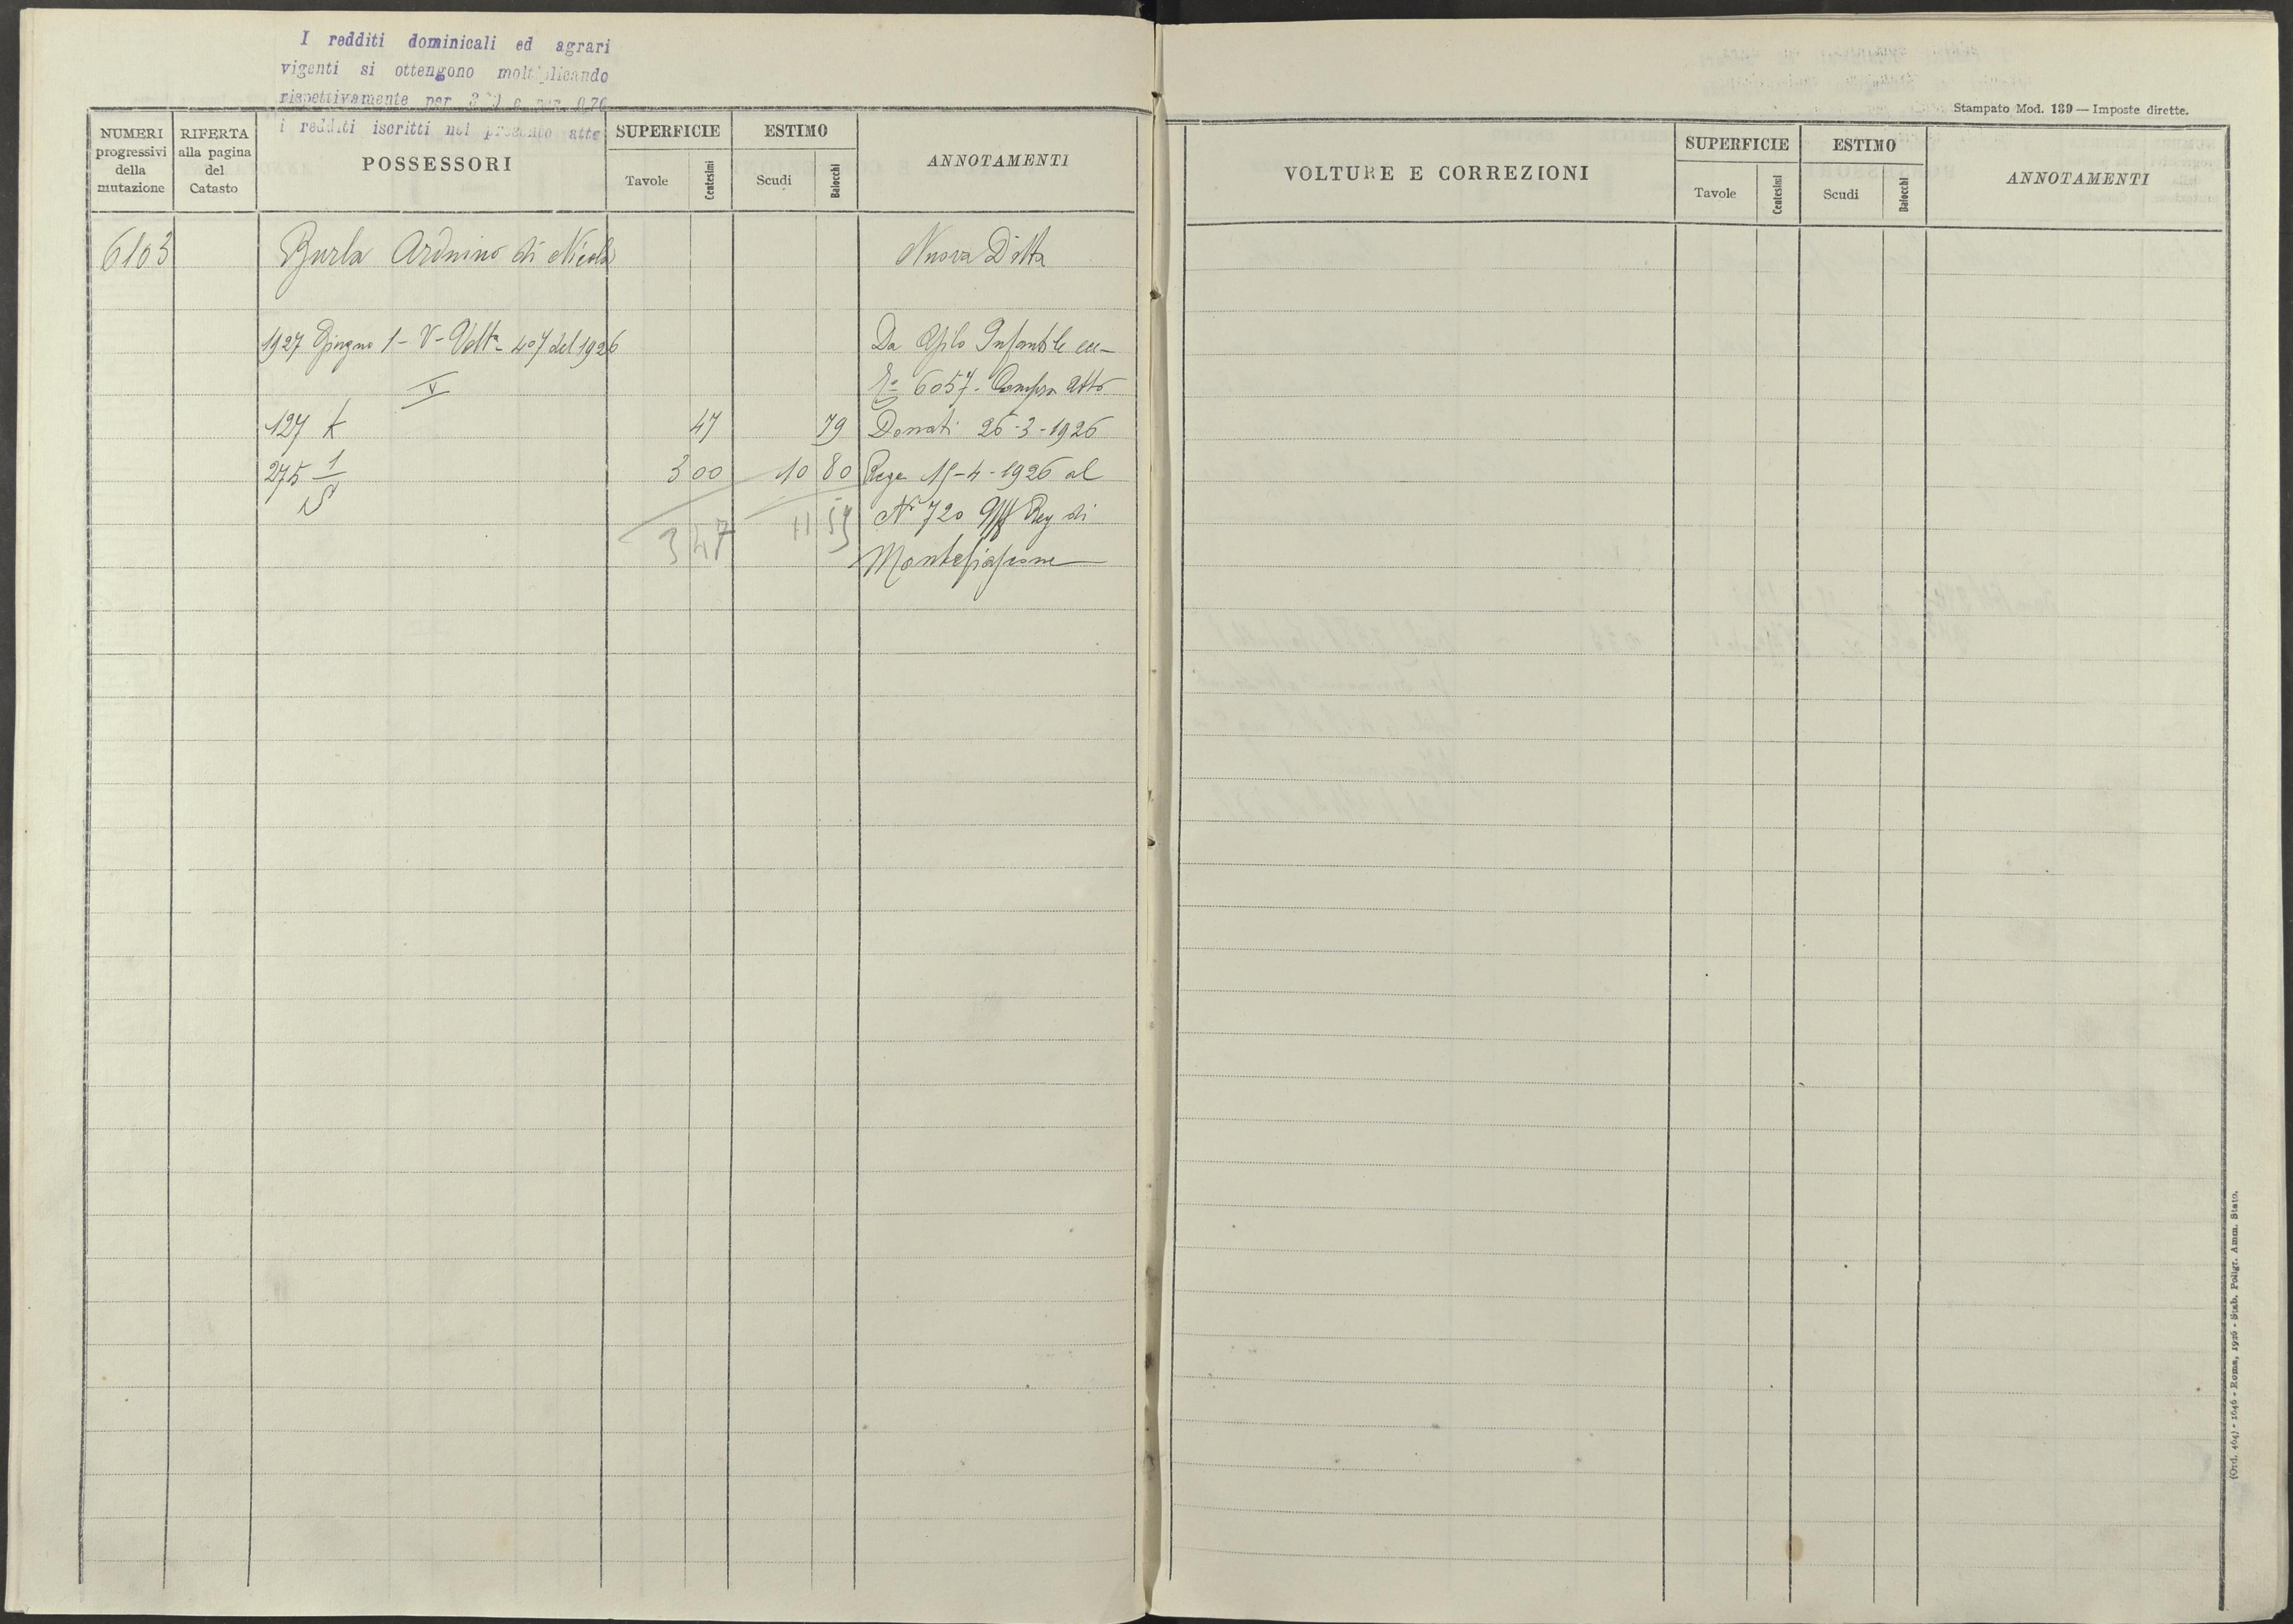 I redditi dominicali ed agrari
vigenti si ottengono moltiplicando
rispettivamente per e per 0,70
i redditi iscritti nel presente atto
NUMERI progressivi della mutazione
RIFERTA alla pagina del Catasto
POSSESSORI
SUPERFICIE
Tavole Centesimi
ESTIMO
Scudi Baiocchi
ANNOTAMENTI
6103 Burla Arduino di Nicola Nuova Ditta
1927 Giugno 1 - V - Volta 407 del 1926 Da Asilo Infantile
V 6057 - Compra Atto
127 k 47 79 Donati 26-3-1926
275 1/S 3 00 10 80 Rege 15-4-1926 al
3 47 11 59 N° 720 Uff Reg di
Montefiascone
Stampato Mod. 139 — Imposte dirette.
VOLTURE E CORREZIONI
SUPERFICIE
Tavole Centesimi
ESTIMO
Scudi Baiocchi
ANNOTAMENTI
(Ord. 464) - 1646 - Roma, 1926 - Stab. Poligr. Amm. Stato.